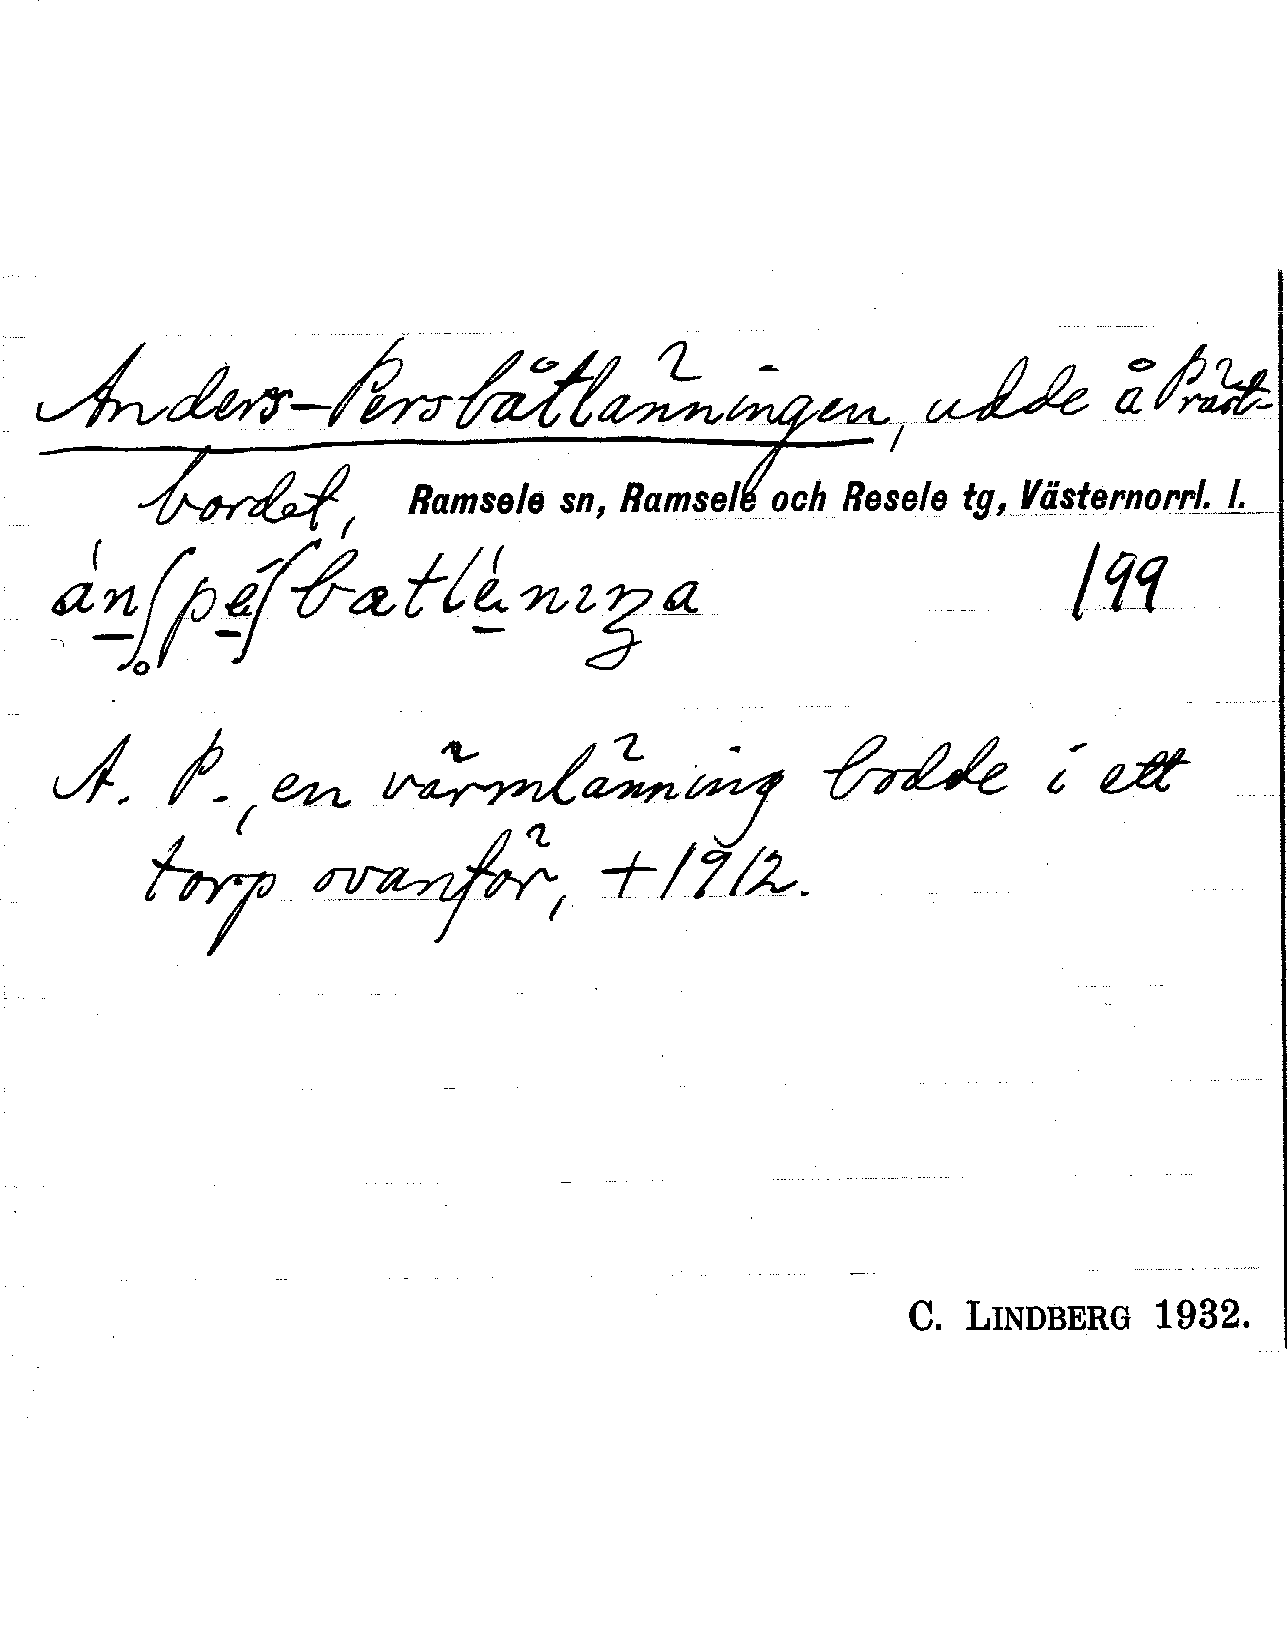 Anders-Persbåtlänningen, udde å Präst-
bordet, Ramsele sn, Ramsele och Resele tg, Västernorrl. l.
199
A. P., en värmlänning bodde i ett
torp ovanför, +1912.
C. LINDBERG 1932.